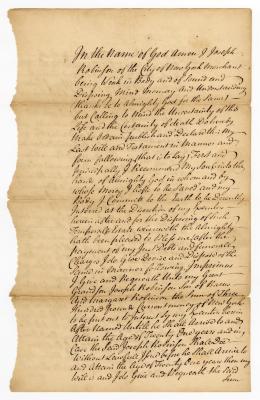 In the Name of God Amen I Joseph
Robinson of the City of New York Merchant
being Weak in Body and of Sound and
Disposing Mind Memory and Understanding
thanks be to Almighty God for the Same
but Calling to Mind the Uncertainty of this
Life and the Certainty of death Do hereby
Make Publish and Declare this My
Last Will and Testament in Manner and
form following that is to Say First and
Principally I Recommend My Soul into the
Hands of Almighty God in whom and by
whose Mercy I hope to be Saved and my
Body I Commit to the Earth to be Decently
Interred at the Discretion of my Executors
herein after named as for Disposing of Such
Temporal Estate wherewith the Almighty
hath been pleased to Bless me (after the
payment of my Just Debts and funeral
Charges) I do Give Devise and Dispose of the
Same in Manner following Imprimis
I Give and Bequeath unto my
Grandson Joseph Robinson Son of
and Margaret Robinson the Sum of Three
Hundred Pounds Current money of New York
to be put out to Interest by my Executors herein
after Named untill he Shall Arrive to and
Attain the Age of Twenty One years and in
Case the Said Joseph Robinson Shall Die
Without Lawfull Issue before he Shall Arrive to
and attain the Age of Twenty One years then my
Will is and I do Give and Bequeath the Said
Sum